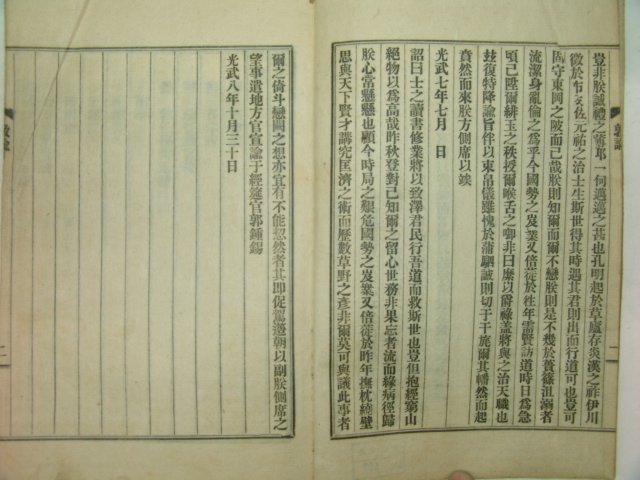 豈非朕誠禮之霱耶一何邁邁之甚也孔明起於草廬存炎漢之祚伊川
徵於佐元祐之治士生斯世得其時遇其君則出而行道可也豈可
固守東岡之陂而已哉朕則知爾而爾不戀朕則是不幾於蕢篠沮溺者
流潔身亂倫之爲乎今國勢之岌業又倍蓰於往年需賢訪道時日爲急
頃已陞爾緋玉之秩授爾喉舌之卿非曰縻以爵祿盖將與之治天職也
玆復特降諭旨伴以束帛儀雖愧於蒲駟誠則切于干旄爾其幡然而起
賁然而來朕方側席以竢
光武七年七月 日
詔曰士之讀書修業將以致澤君民行吾道而救斯世也豈但抱經窮山
絕物以爲高哉昨秋登對已知爾之留心世務非果忘者流而緣病徑歸
朕心常懸懸也顧今時局之艱危國勢之岌業又倍蓰於昨年撫枕繞壁
思與天下賢才講究匡濟之術而歷數草野之彥非爾莫可與議此事者
爾之倚斗戀闕之想亦宜有不能恝然者其即促駕造朝以副朕側席之
望事遣地方官宣諭于經筵官郭鍾錫
光武八年十月三十日